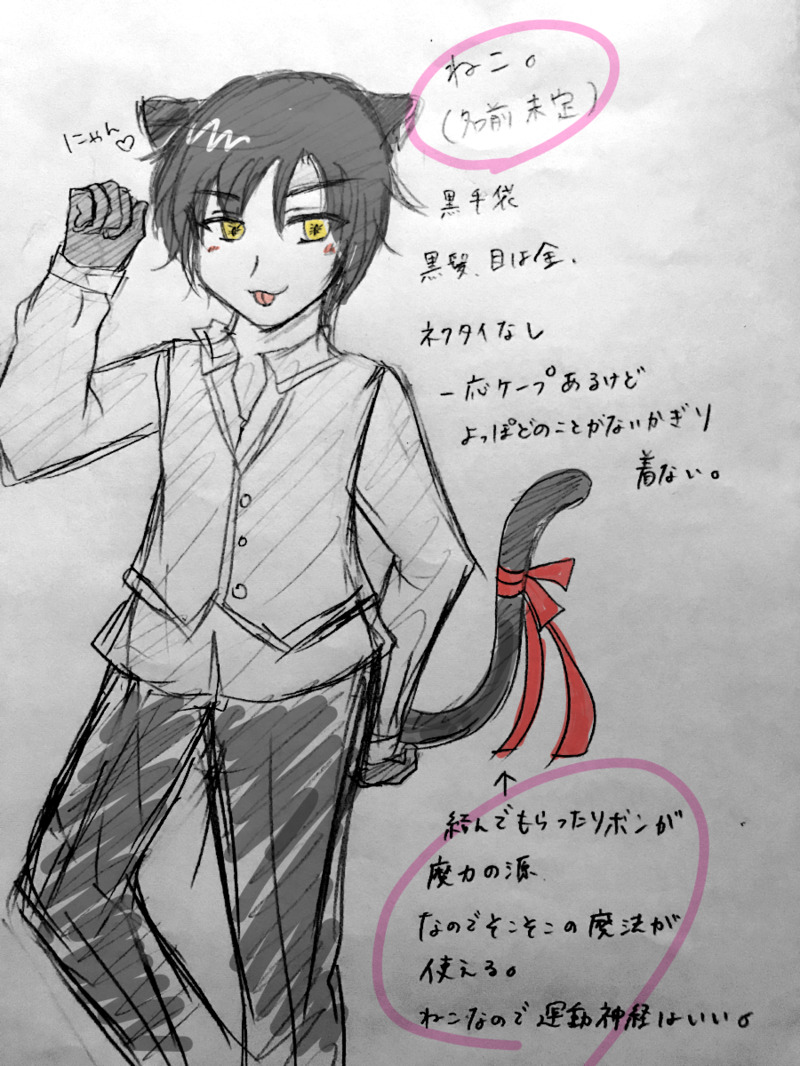 ねこ。
(名前未定)
にゃん♡
黒手袋
黒髪、目は金、
ネクタイなし
一応ケープあるけど
よっぽどのことがないかぎり
着ない。
↑
結んでもらったリボンが
魔力の源
なのでそこそこの魔法が
使える。
ねこなので運動神経はいい。